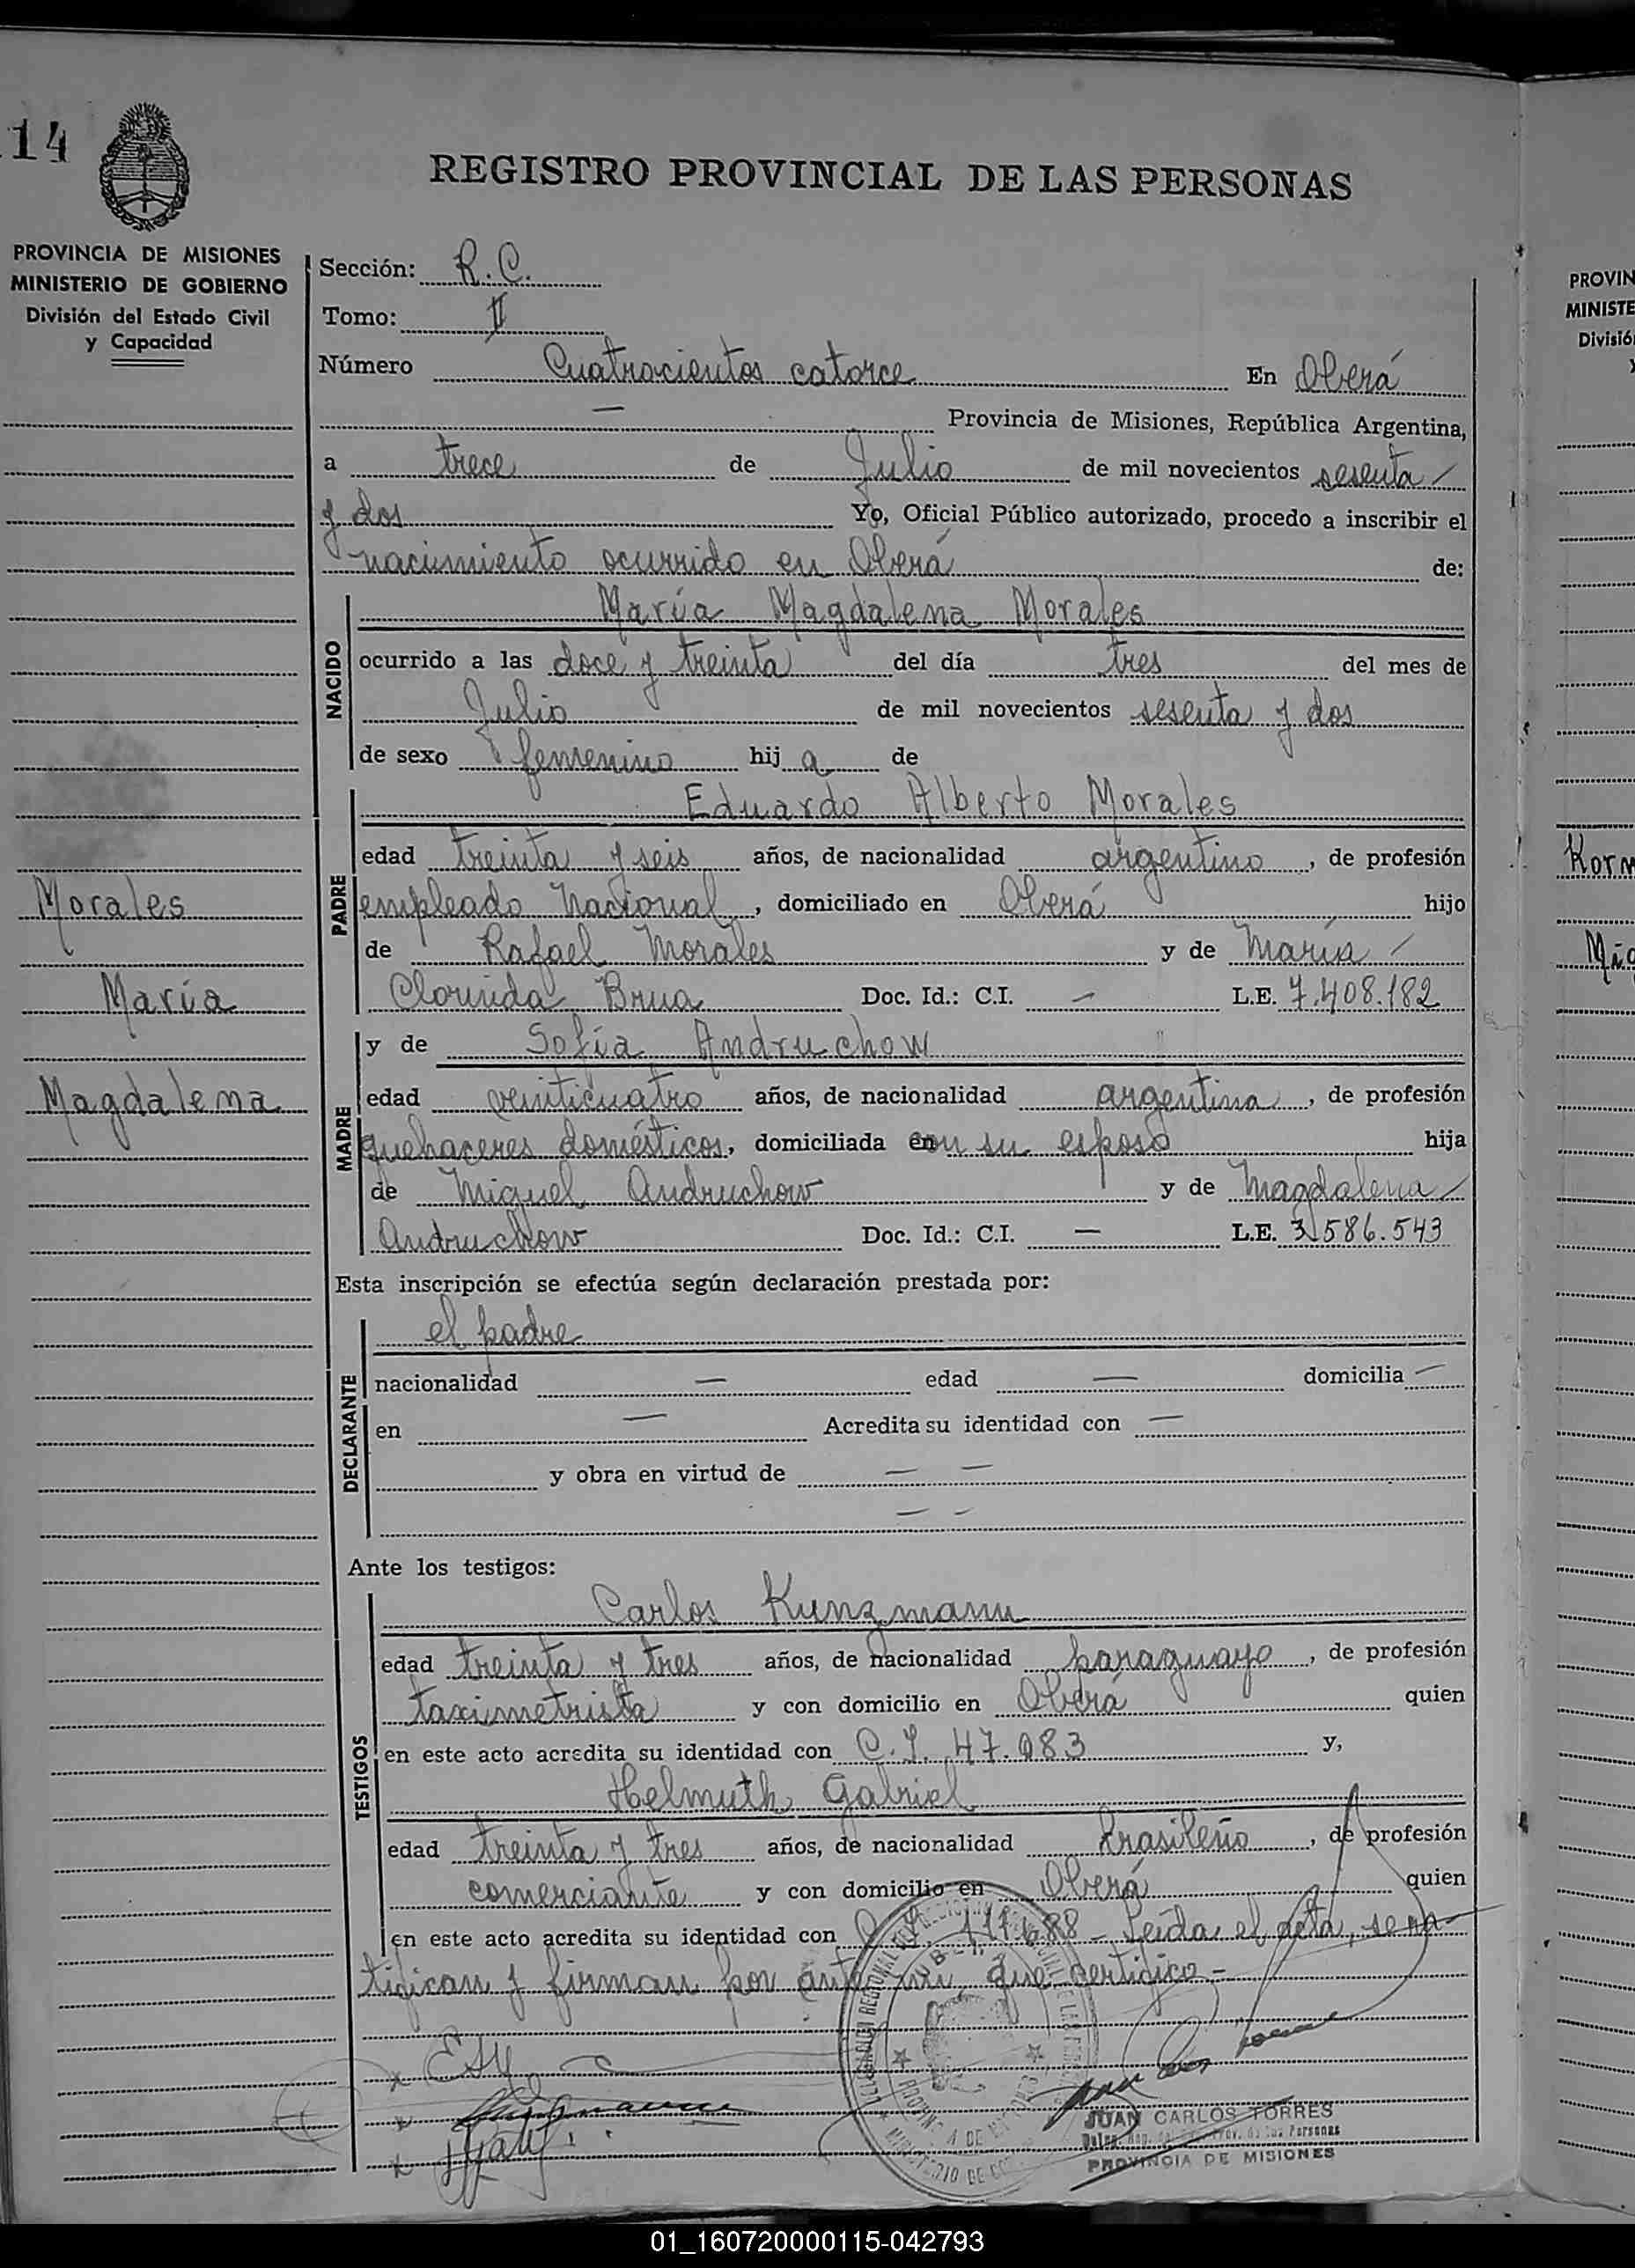 14
REGISTRO PROVINCIAL DE LAS PERSONAS
PROVINCIA DE MISIONES
MINISTERIO DE GOBIERNO
División del Estado Civil
y Capacidad
Sección: R. C.
Tomo: II
Número Cuatrocientos catorce En Oberá
— Provincia de Misiones, República Argentina,
a trece de Julio de mil novecientos sesenta
y dos Yo, Oficial Público autorizado, procedo a inscribir el
nacimiento ocurrido en Oberá de:
NACIDO
María Magdalena Morales
ocurrido a las doce y treinta del día tres del mes de
Julio de mil novecientos sesenta y dos
de sexo femenino hij a de
PADRE
Eduardo Alberto Morales
edad treinta y seis años, de nacionalidad argentino, de profesión
empleado Nacional, domiciliado en Oberá hijo
de Rafael Morales y de María
Clorinda Brua Doc. Id.: C.I. — L.E. 7.408.182
MADRE
y de Sofía Andruchow
edad veinticuatro años, de nacionalidad argentina, de profesión
quehaceres domésticos, domiciliada con su esposo hija
de Miguel Andruchow y de Magdalena
Andruchow Doc. Id.: C.I. — L.E. 3.586.543
Morales
María
Magdalena
Esta inscripción se efectúa según declaración prestada por:
DECLARANTE
el padre
nacionalidad — edad — domicilia —
en — Acredita su identidad con —
y obra en virtud de — —
— —
Ante los testigos:
TESTIGOS
Carlos Kunzmann
edad treinta y tres años, de nacionalidad paraguayo, de profesión
taximetrista y con domicilio en Oberá quien
en este acto acredita su identidad con C.I. 47.083 y,
Helmuth Gabriel
edad treinta y tres años, de nacionalidad brasileño, de profesión
comerciante y con domicilio en Oberá quien
en este acto acredita su identidad con 117.688 - Leída el acta, se ra
tifican y firman por ante mí que certifico -
JUAN CARLOS TORRES
PROVINCIA DE MISIONES
PROVIN
MINISTE
Divisió
Korn
Mig
01_160720000115-042793